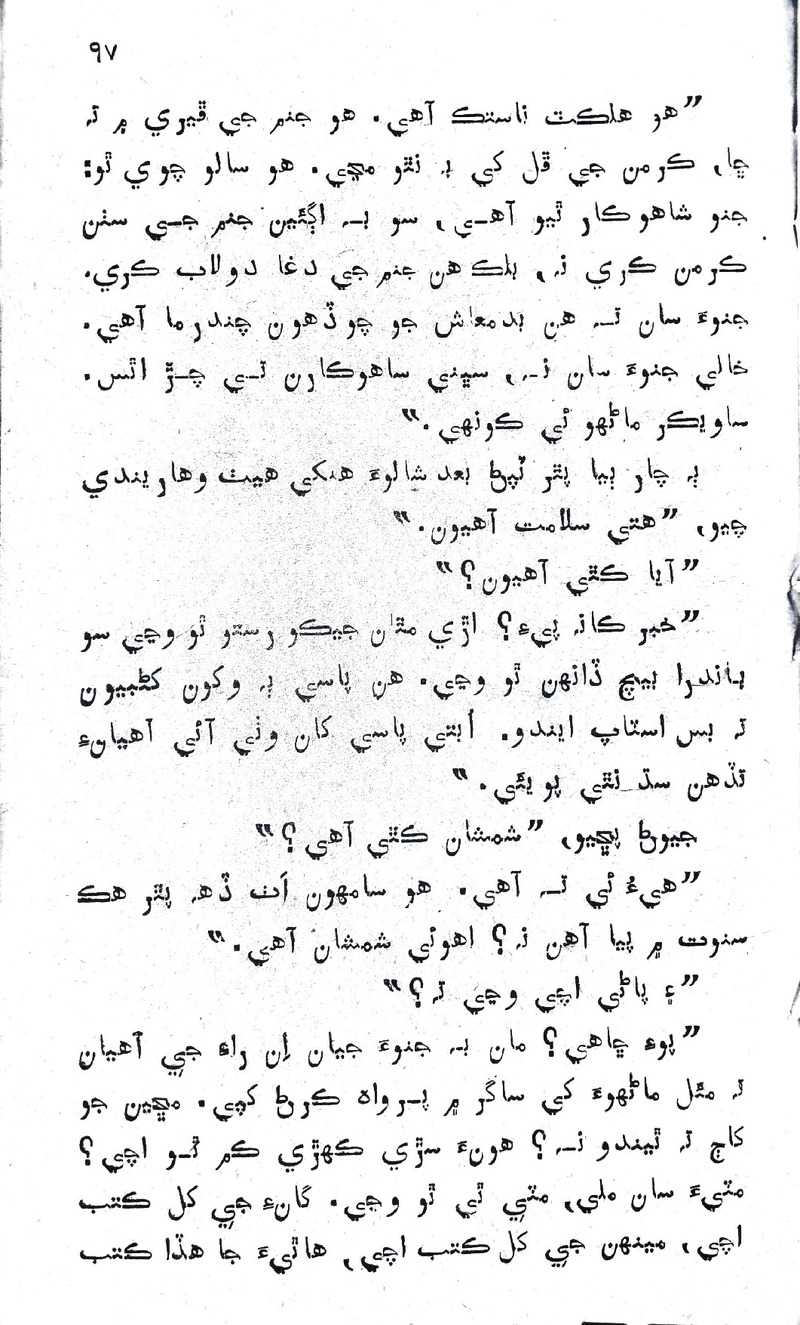 ۹۷
”هو هلڪٽ ناستڪ آهي. هو جنم جي ڦيري ۾ تہ
ڇا، ڪرمن جي ڦل کي بہ نٿو مڃي. هو سالو چوي ٿو:
جنو شاهوڪار ٿيو آهي، سو بہ اڳئين جنم جي سٺن
ڪرمن ڪري نہ، بلڪ هن جنم جي دغا دولاب ڪري.
جنوءَ سان تہ هن بدمعاش جو چوڏهون چندرما آهي.
خالي جنوءَ سان نہ، سڀني ساهوڪارن تي چڙ اٿس.
ساويڪر ماڻهو ئي ڪونهي.“
ٻہ چار ٻيا پٿر ٽپڻ بعد شالوءَ هنکي هيٺ وهاريندي
چيو، ”هتي سلامت آهيون.“
”آيا ڪٿي آهيون؟“
”خبر کانہ پيءِ؟ اڙي مٿان جيڪو رستو ٿو وڃي سو
باندرا بيچ ڏانهن ٿو وڃي. هن پاسي ٻہ وکون کڻبيون
تہ بس اسٽاپ ايندو. اُبتي پاسي کان وٺي آئي آهيانءِ
تڏهن سڌ نٿي پويئي.“
جيوڻ پڇيو، ”شمشان ڪٿي آهي؟“
”هيءُ ئي تہ آهي. هو سامهون اَٺ ڏھ پٿر هڪ
سنوت ۾ پيا آهن نہ؟ اهوئي شمشان آهي.“
”۽ پاڻي اچي وڃي تہ؟“
”پوءِ ڇاهي؟ مان بہ جنوءَ جيان اِن راءِ جي آهيان
تہ مئل ماڻهوءَ کي ساگر ۾ پرواھ ڪرڻ کپي. مڇين جو
کاڄ تہ ٿيندو نہ؟ هونءَ سڙي ڪهڙي ڪم ٿو اچي؟
مٽيءَ سان ملي، مٽي ٿي ٿو وڃي. گانءِ جي کل ڪتب
اچي، مينهن جي کل ڪتب اچي، هاٿيءَ جا هڏا ڪتب